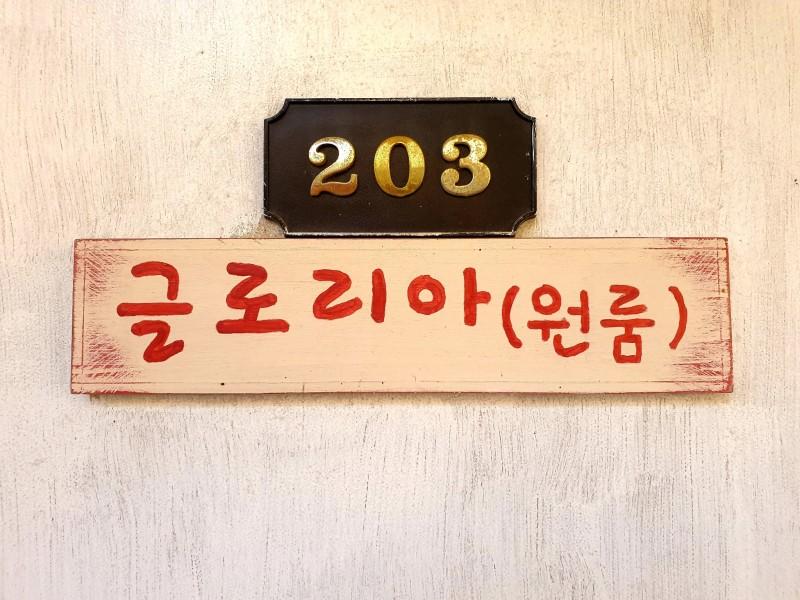 203
글로리아(원룸)